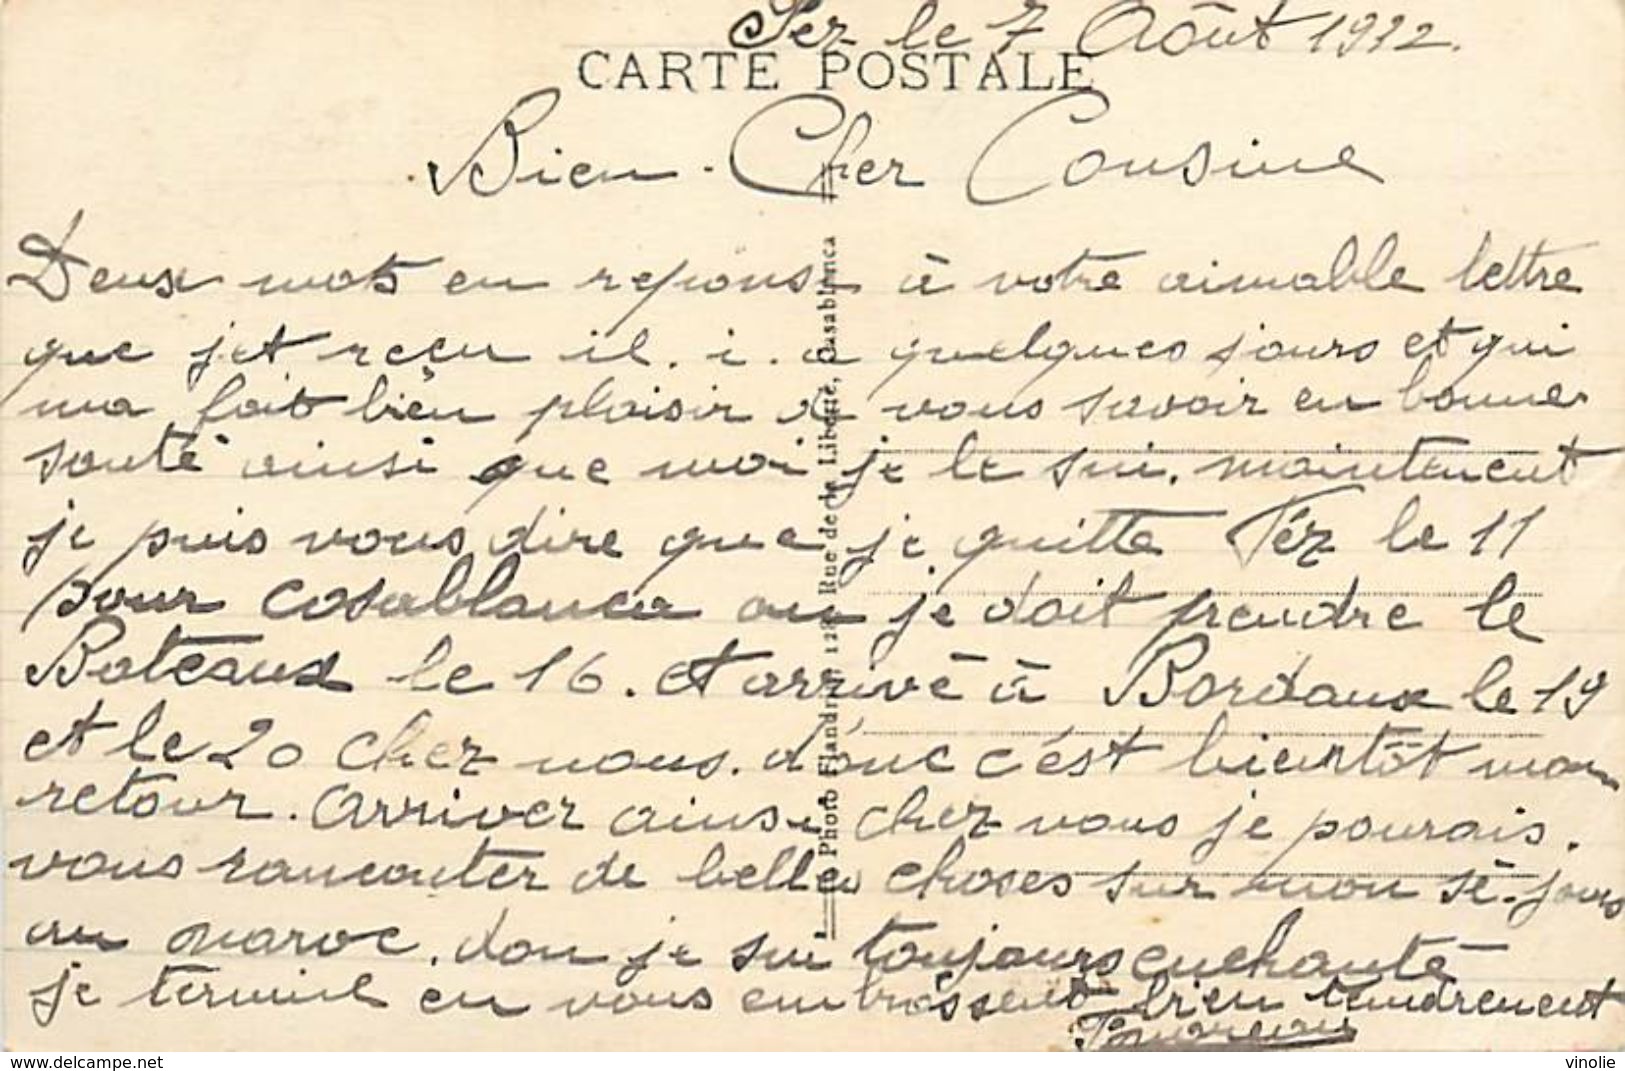 Fez le 7 Août 1932.
CARTE POSTALE
Bien Cher Cousine
Deux mots en reponse à votre aimable lettre
que jet reçu il. i. a quelques jours et qui
ma fait bien plaisir de vous savoir en bonne
santé ainsi que moi je le sui. maintenent
je puis vous dire que je quitte Féz le 11
pour casablanca ou je doit prendre le
Bateaux le 16. et arrivé à Bordaux le 19
et le 20 chez nous. donc c'est bientôt mon
retour. Arriver ainsi chez vous je pourais.
vous raconter de belles choses sur mon sé-jours
au maroc. don je sui toujours enchanté
je termine en vous embrassent bien tendrement
Photo Flandrin 128, Rue de la Liberté, Casablanca
delcampe.net
vinolie